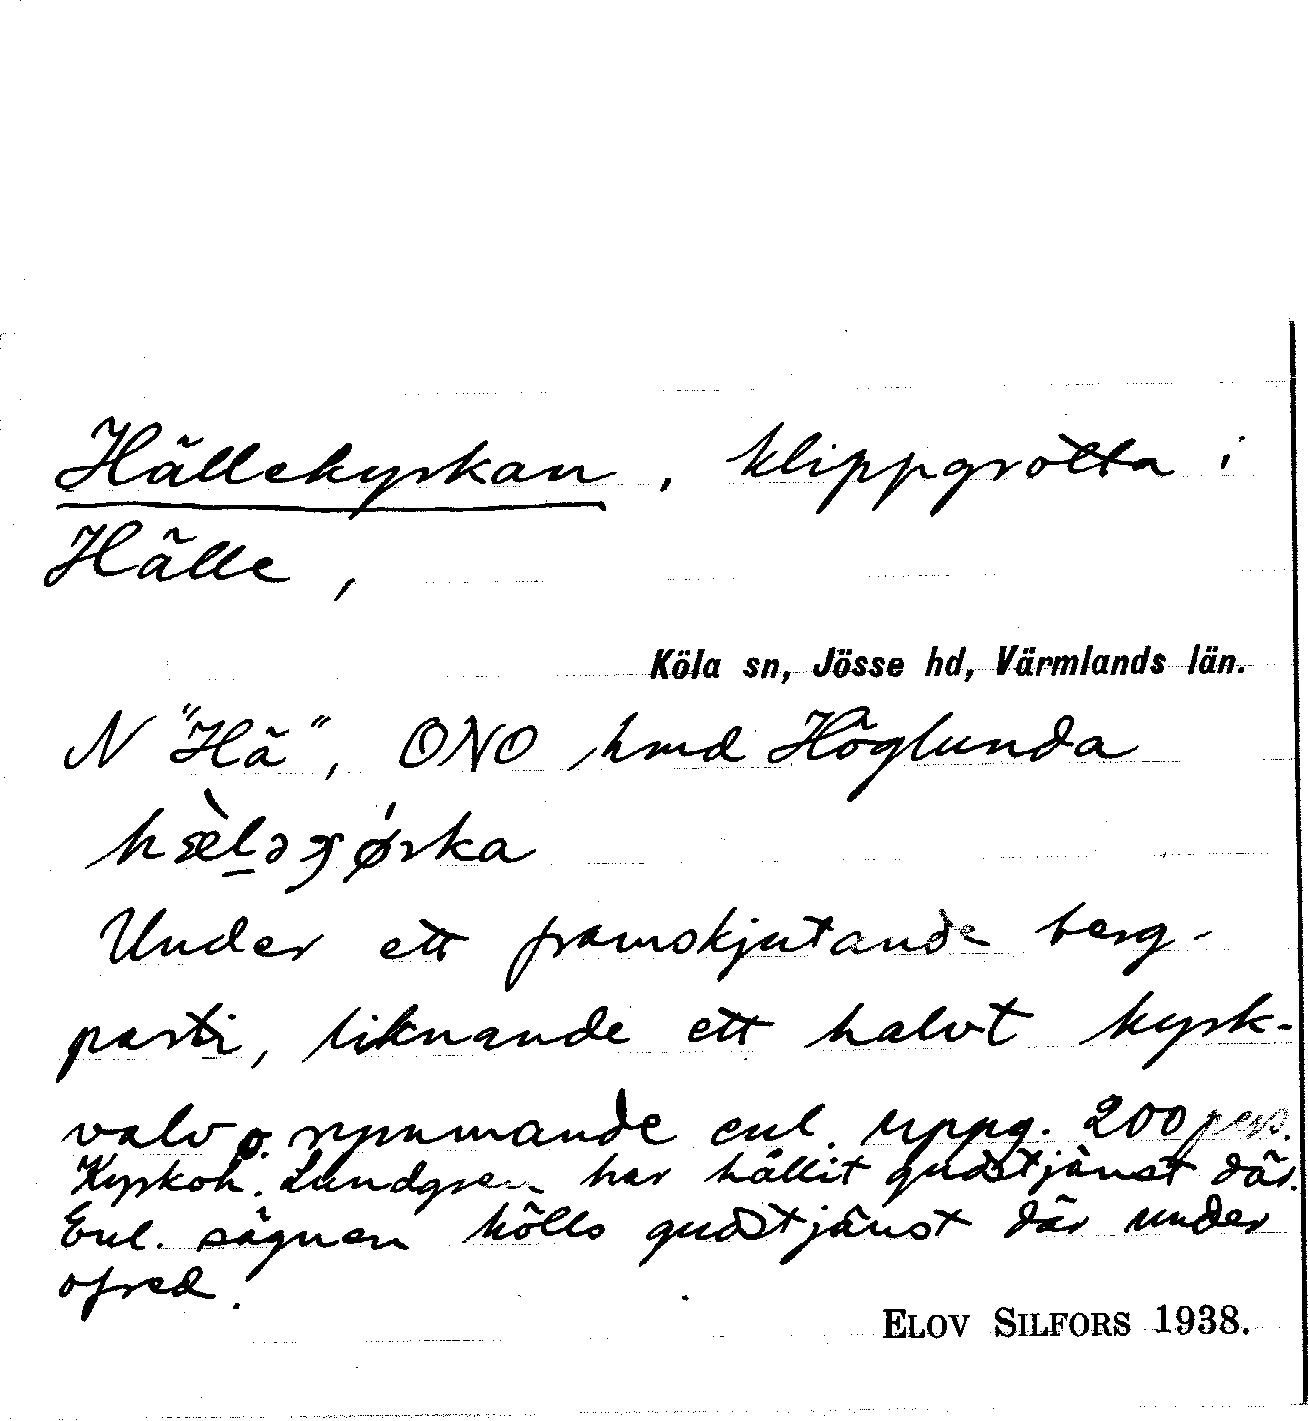 Hällekyrkan, klippgrotta i
Hälle,
Köla sn, Jösse hd, Värmlands län.
N "Hä", ONO hmd Höglunda
Under ett framskjutande berg-
parti, liknande ett halvt kyrk-
valv o. rymmande enl. uppg. 200 pers.
Kyrkoh. Lundgren har hållit gudstjänst där.
Enl. sägnen hölls gudstjänst där under
ofred.
ELOV SILFORS 1938.